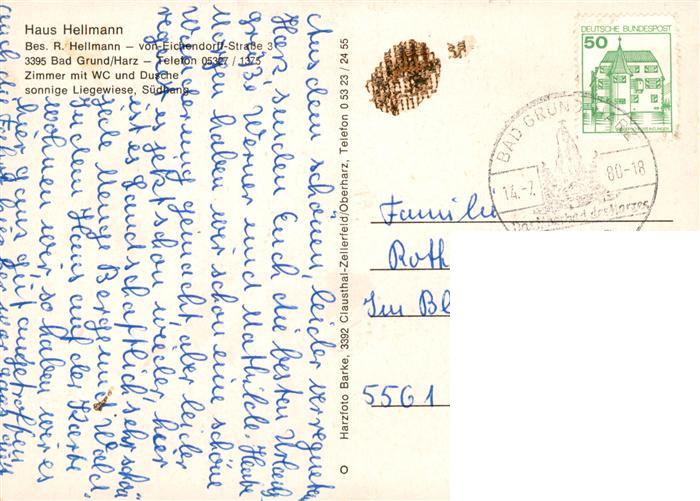 Haus Hellmann
Bes. R. Hellmann – von-Eichendorff-Straße 3
3395 Bad Grund/Harz – Telefon 05327 / 1375
Zimmer mit WC und Dusche
sonnige Liegewiese, Südhang
Aus dem schönen, leider verregneten
Harz, senden Euch die besten Urlaubs
grüße Werner und Mathilde. Heute
Morgen haben wir schon eine schöne
Wanderung gemacht, aber leider
regnet es jetzt schon wieder. Hier
ist es landschaftlich sehr schön
jede Menge Berge und Wald.
In dem Haus auf der Karte
wohnen wir, so haben wir es
hier ganz gut angetroffen
Harzfoto Barke, 3392 Clausthal-Zellerfeld/Oberharz, Telefon 0 53 23 / 24 55
DEUTSCHE BUNDESPOST
50
BAD GRUND
14.-7. 80-18
des Harzes
Familie
Roth
Im Bl
5561